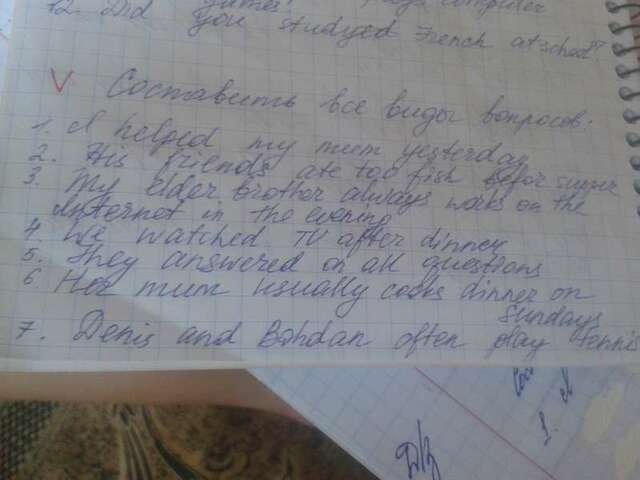 12. Did games? plays computer
you studyed French at school?
V Составить все виды вопросов:
1. I helped my mum yesterday
2. His friends ate too fish for supper
3. My elder brother always works on the
internet in the evening
4. We watched TV after dinner
5. They answered on all questions
6. Her mum usually cooks dinner on
sundays
7. Denis and Bohdan often play tennis
1. I
Д/з